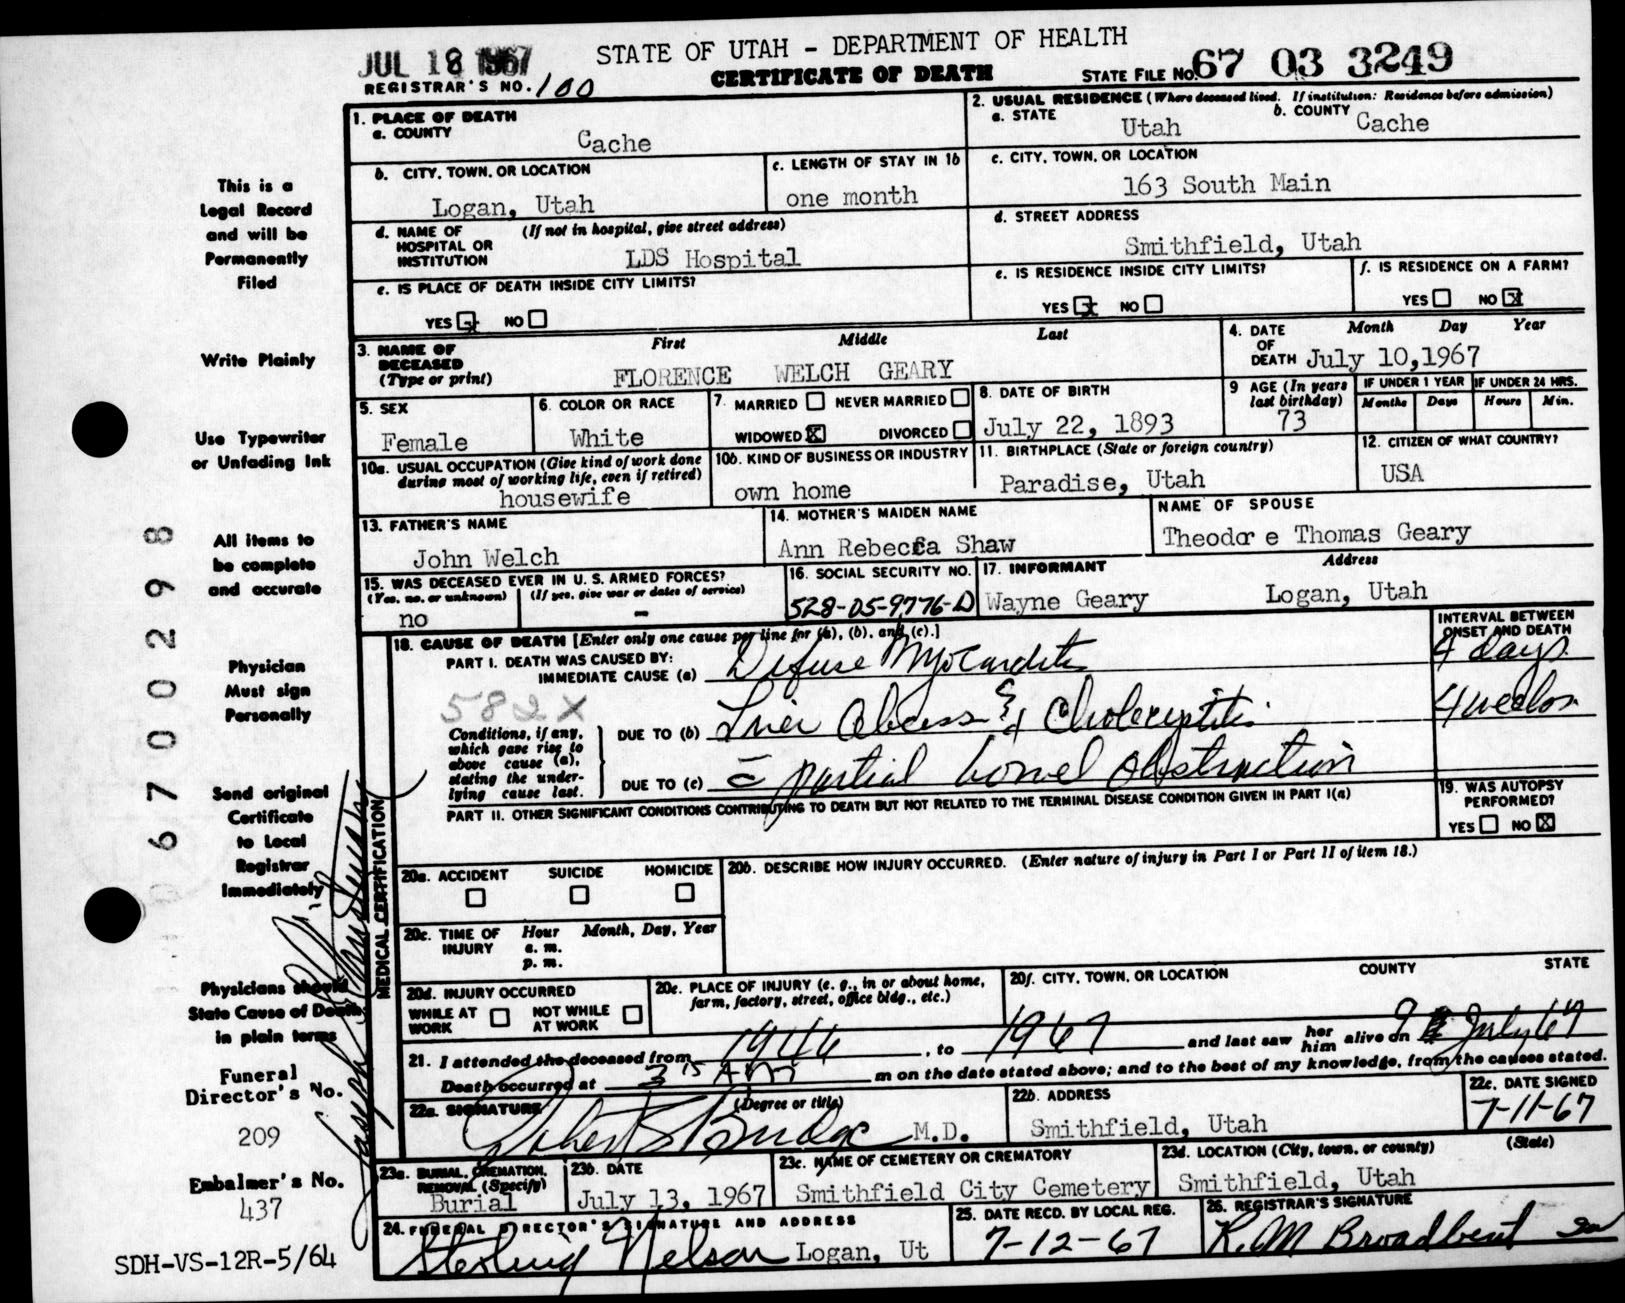 JUL 18 1967
STATE OF UTAH - DEPARTMENT OF HEALTH
CERTIFICATE OF DEATH
STATE FILE NO. 67 03 3249
REGISTRAR'S NO. 100
1. PLACE OF DEATH
a. COUNTY
Cache
2. USUAL RESIDENCE (Where deceased lived. If institution: Residence before admission)
a. STATE
Utah
b. COUNTY
Cache
b. CITY, TOWN, OR LOCATION
Logan, Utah
c. LENGTH OF STAY IN 1b
one month
c. CITY, TOWN, OR LOCATION
163 South Main
d. NAME OF HOSPITAL OR INSTITUTION
(If not in hospital, give street address)
LDS Hospital
d. STREET ADDRESS
Smithfield, Utah
e. IS PLACE OF DEATH INSIDE CITY LIMITS?
YES x NO
e. IS RESIDENCE INSIDE CITY LIMITS?
YES x NO
f. IS RESIDENCE ON A FARM?
YES NO x
3. NAME OF DECEASED
(Type or print)
First Middle Last
FLORENCE WELCH GEARY
4. DATE OF DEATH
Month Day Year
July 10,1967
5. SEX
Female
6. COLOR OR RACE
White
7. MARRIED NEVER MARRIED
WIDOWED X DIVORCED
8. DATE OF BIRTH
July 22, 1893
9 AGE (In years last birthday)
73
IF UNDER 1 YEAR
Months Days
IF UNDER 24 HRS.
Hours Min.
10a. USUAL OCCUPATION (Give kind of work done
during most of working life, even if retired)
housewife
10b. KIND OF BUSINESS OR INDUSTRY
own home
11. BIRTHPLACE (State or foreign country)
Paradise, Utah
12. CITIZEN OF WHAT COUNTRY?
USA
13. FATHER'S NAME
John Welch
14. MOTHER'S MAIDEN NAME
Ann Rebecca Shaw
NAME OF SPOUSE
Theodor e Thomas Geary
15. WAS DECEASED EVER IN U. S. ARMED FORCES?
(Yes, no, or unknown) (If yes, give war or dates of service)
no -
16. SOCIAL SECURITY NO.
528-05-9776-D
17. INFORMANT
Wayne Geary
Address
Logan, Utah
18. CAUSE OF DEATH [Enter only one cause per line for (a), (b), and (c).]
INTERVAL BETWEEN ONSET AND DEATH
PART I. DEATH WAS CAUSED BY:
IMMEDIATE CAUSE (a) Difuse Myocarditis
4 days
582X
Conditions, if any, which gave rise to above cause (a), stating the underlying cause last.
DUE TO (b) Liver Abcess & Cholecystitis
4 weeks
DUE TO (c) c partial bowel obstruction
PART II. OTHER SIGNIFICANT CONDITIONS CONTRIBUTING TO DEATH BUT NOT RELATED TO THE TERMINAL DISEASE CONDITION GIVEN IN PART I(a)
19. WAS AUTOPSY PERFORMED?
YES NO X
MEDICAL CERTIFICATION
20a. ACCIDENT SUICIDE HOMICIDE
20b. DESCRIBE HOW INJURY OCCURRED. (Enter nature of injury in Part I or Part II of item 18.)
20c. TIME OF INJURY
Hour Month, Day, Year
a. m.
p. m.
20d. INJURY OCCURRED
WHILE AT WORK NOT WHILE AT WORK
20e. PLACE OF INJURY (e. g., in or about home,
farm, factory, street, office bldg., etc.)
20f. CITY, TOWN, OR LOCATION COUNTY STATE
21. I attended the deceased from 1946, to 1967 and last saw her him alive on 9 July 67
Death occurred at 3 15 AM m on the date stated above; and to the best of my knowledge, from the causes stated.
22a. SIGNATURE (Degree or title)
M.D.
22b. ADDRESS
Smithfield, Utah
22c. DATE SIGNED
7-11-67
23a. BURIAL, CREMATION, REMOVAL (Specify)
Burial
23b. DATE
July 13, 1967
23c. NAME OF CEMETERY OR CREMATORY
Smithfield City Cemetery
23d. LOCATION (City, town, or county) (State)
Smithfield, Utah
24. FUNERAL DIRECTOR'S SIGNATURE AND ADDRESS
Sterling Nelson Logan, Ut
25. DATE RECD. BY LOCAL REG.
7-12-67
26. REGISTRAR'S SIGNATURE
R.M Broadbent
This is a
Legal Record
and will be
Permanently
Filed
Write Plainly
Use Typewriter
or Unfading Ink
All items to
be complete
and accurate
Physician
Must sign
Personally
Send original
Certificate
to Local
Registrar
Immediately
Physicians should
State Cause of Death
in plain terms
Funeral
Director's No.
209
Embalmer's No.
437
SDH-VS-12R-5/64
067000298